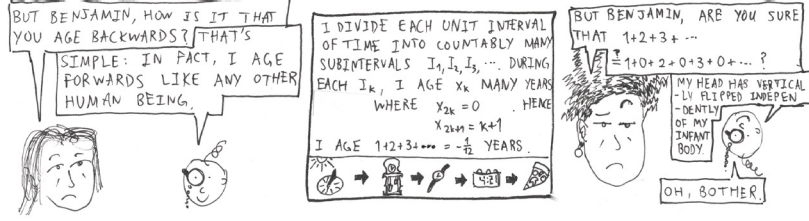 BUT BENJAMIN, HOW IS IT THAT
YOU AGE BACKWARDS?
THAT'S
SIMPLE: IN FACT, I AGE
FORWARDS LIKE ANY OTHER
HUMAN BEING.
I DIVIDE EACH UNIT INTERVAL
OF TIME INTO COUNTABLY MANY
SUBINTERVALS I₁, I₂, I₃, ···. DURING
EACH Iₖ, I AGE xₖ MANY YEARS
WHERE x₂ₖ = 0 . HENCE
x₂ₖ₊₁ = k+1
I AGE 1+2+3+··· = -1/12 YEARS.
4:21
BUT BENJAMIN, ARE YOU SURE
THAT 1+2+3+ ···
?= 1+0+2+0+3+0+ ··· ?
MY HEAD HAS VERTICAL
-LY FLIPPED INDEPEN
-DENTLY
OF MY
INFANT
BODY.
OH, BOTHER.